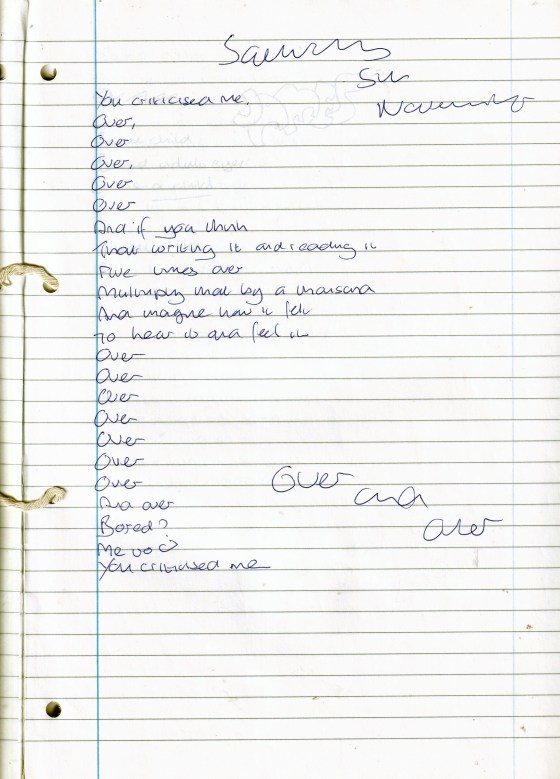 Saturday
5th
November
You criticised me.
Over,
Over
Over,
Over
Over
And if you think
That writing it and reading it
Five times over
Multiply that by a thousand
And imagine how it felt
To hear it and feel it
Over
Over
Over
Over
Over
Over
Over
And over
Over
and
over
Bored?
Me too
You criticised me